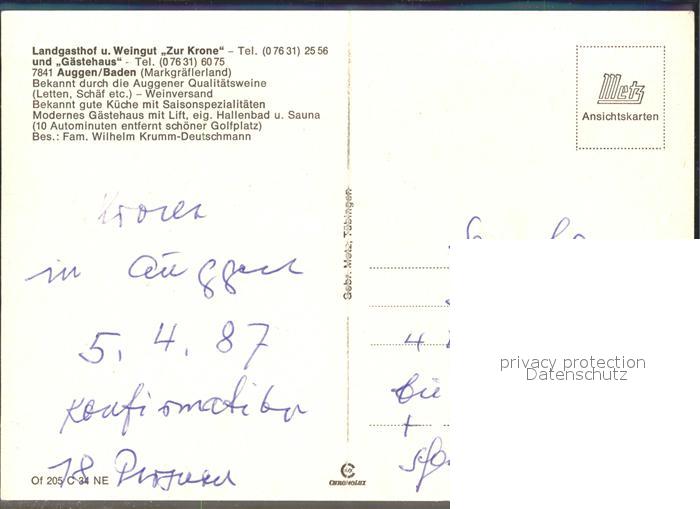 Landgasthof u. Weingut „Zur Krone“ – Tel. (0 76 31) 25 56
und „Gästehaus“ - Tel. (0 76 31) 60 75
7841 Auggen/Baden (Markgräflerland)
Bekannt durch die Auggener Qualitätsweine
(Letten, Schäf etc.) – Weinversand
Bekannt gute Küche mit Saisonspezialitäten
Modernes Gästehaus mit Lift, eig. Hallenbad u. Sauna
(10 Autominuten entfernt schöner Golfplatz)
Bes.: Fam. Wilhelm Krumm-Deutschmann
Metz
Ansichtskarten
Gebr. Metz, Tübingen
Kronen
in Auggen
5. 4. 87
Konfirmation
18 Personen
Of 205/C 34 NE
CHROMOLUX
4
+
privacy protection
Datenschutz